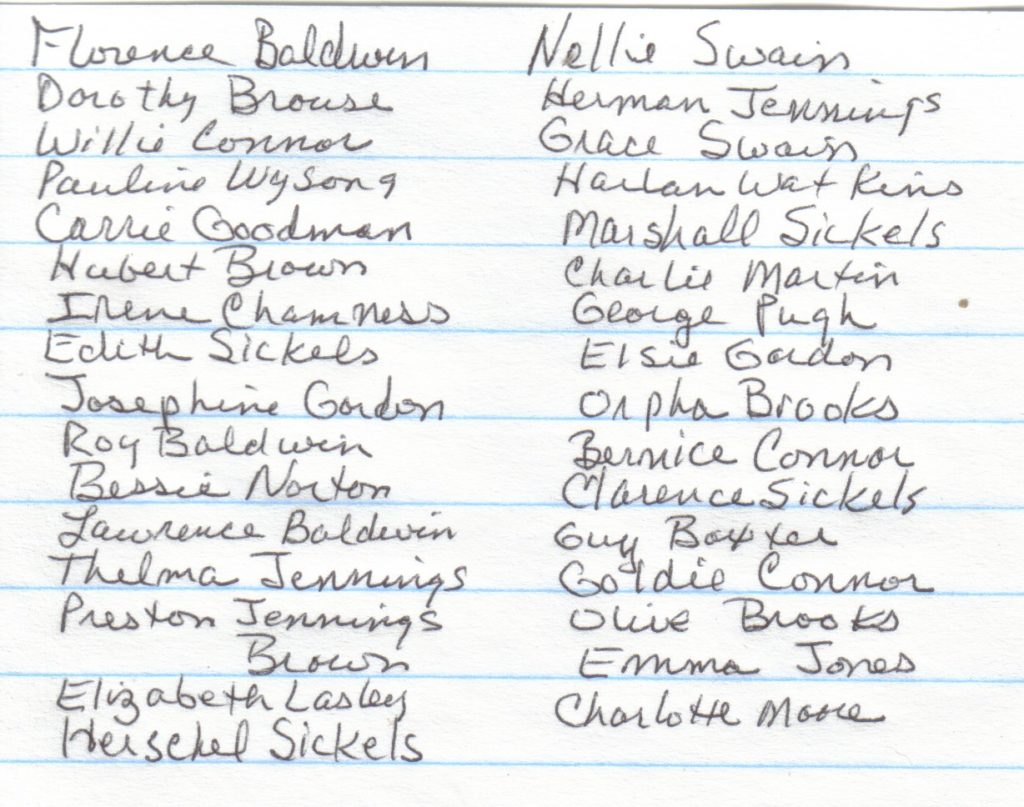 Florence Baldwin
Dorothy Brouse
Willie Connor
Pauline Wysong
Carrie Goodman
Hubert Brown
Irene Chamness
Edith Sickels
Josephine Gordon
Roy Baldwin
Bessie Norton
Lawrence Baldwin
Thelma Jennings
Preston Jennings
Brown
Elizabeth Lasley
Herschel Sickels
Nellie Swain
Herman Jennings
Grace Swain
Harlan Watkins
Marshall Sickels
Charlie Martin
George Pugh
Elsie Gordon
Orpha Brooks
Bernice Connor
Clarence Sickels
Guy Baxter
Goldie Connor
Olive Brooks
Emma Jones
Charlotte Moore